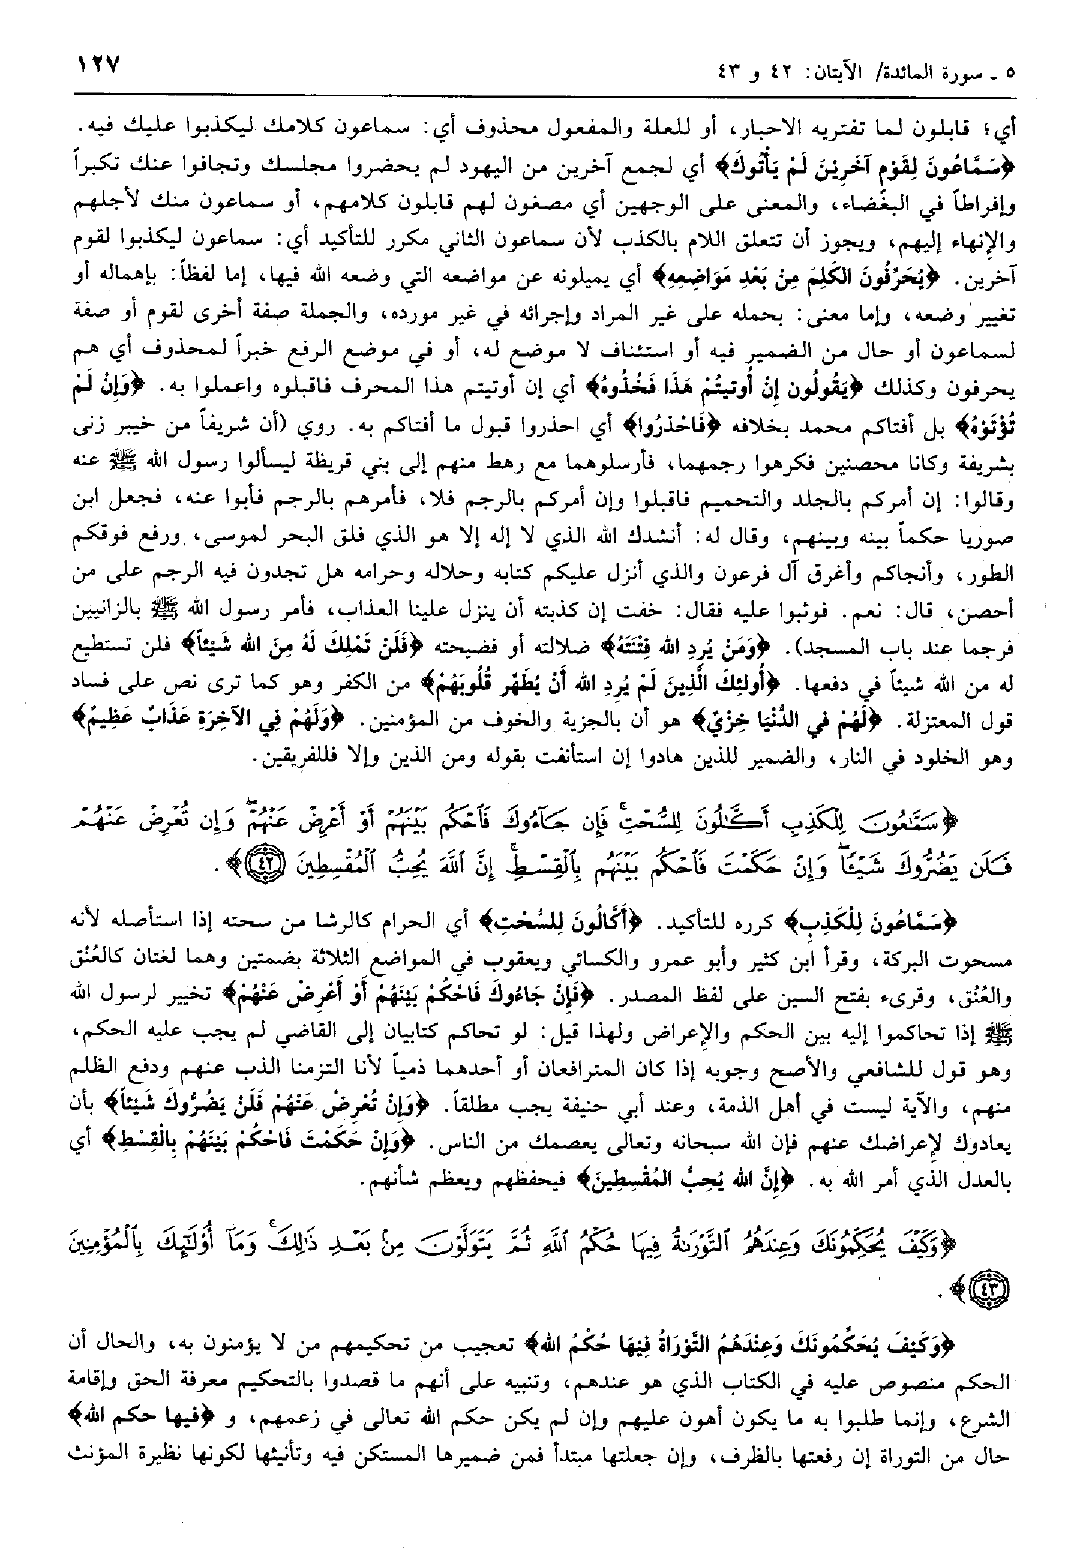 ٥ ـ سورة المائدة/ الآيتان: ٤٢ و ٤٣
١٢٧
أي؛ قابلون لما تفتريه الاحبار، أو للعلة والمفعول محذوف أي: سماعون كلامك ليكذبوا عليك فيه.
﴿سَمَّاعُونَ لِقَوْمٍ آخَرِيْنَ لَمْ يَأْتُوكَ﴾ أي لجمع آخرين من اليهود لم يحضروا مجلسك وتجافوا عنك تكبراً
وإفراطاً في البغضاء، والمعنى على الوجهين أي مصغون لهم قابلون كلامهم، أو سماعون منك لأجلهم
والإنهاء إليهم، ويجوز أن تتعلق اللام بالكذب لأن سماعون الثاني مكرر للتأكيد أي: سماعون ليكذبوا لقوم
آخرين. ﴿يُحَرِّفُونَ الكَلِمَ مِنْ بَعْدِ مَوَاضِعِهِ﴾ أي يميلونه عن مواضعه التي وضعه الله فيها، إما لفظاً: بإهماله أو
تغيير وضعه، وإما معنى: بحمله على غير المراد وإجرائه في غير مورده، والجملة صفة أخرى لقوم أو صفة
لسماعون أو حال من الضمير فيه أو استئناف لا موضع له، أو في موضع الرفع خبراً لمحذوف أي هم
يحرفون وكذلك ﴿يَقُولُون إنْ أُوتيتُمْ هَذَا فَخُذُوهُ﴾ أي إن أوتيتم هذا المحرف فاقبلوه واعملوا به. ﴿وَإِنْ لَمْ
تُؤْتَوْهُ﴾ بل أفتاكم محمد بخلافه ﴿فَاحْذَرُوا﴾ أي احذروا قبول ما أفتاكم به. روي (أن شريفاً من خيبر زنى
بشريفة وكانا محصنين فكرهوا رجمهما، فأرسلوهما مع رهط منهم إلى بني قريظة ليسألوا رسول الله ﷺ عنه
وقالوا: إن أمركم بالجلد والتحميم فاقبلوا وإن أمركم بالرجم فلا، فأمرهم بالرجم فأبوا عنه، فجعل ابن
صوريا حكماً بينه وبينهم، وقال له: أنشدك الله الذي لا إله إلا هو الذي فلق البحر لموسى، ورفع فوقكم
الطور، وأنجاكم وأغرق آل فرعون والذي أنزل عليكم كتابه وحلاله وحرامه هل تجدون فيه الرجم على من
أحصن، قال: نعم. فوثبوا عليه فقال: خفت إن كذبته أن ينزل علينا العذاب، فأمر رسول الله ﷺ بالزانيين
فرجما عند باب المسجد). ﴿وَمَنْ يُرِدِ الله فِتْنَتَهُ﴾ ضلالته أو فضيحته ﴿فَلَنْ تَمْلِكَ لَهُ مِنَ الله شَيْئاً﴾ فلن تستطيع
له من الله شيئاً في دفعها. ﴿أُولئِكَ الَّذِينَ لَمْ يُرِدِ الله أَنْ يُطَهِّر قُلُوبَهُمْ﴾ من الكفر وهو كما ترى نص على فساد
قول المعتزلة. ﴿لَهُمْ في الدُّنْيَا خِزْيٌ﴾ هو أن بالجزية والخوف من المؤمنين. ﴿وَلَهُمْ فِي الآخِرَةِ عَذَابٌ عَظِيمٌ﴾
وهو الخلود في النار، والضمير للذين هادوا إن استأنفت بقوله ومن الذين وإلا فللفريقين.
﴿سَمَّـٰعُونَ لِلْكَذِبِ أَكَّـٰلُونَ لِلسُّحْتِۚ فَإِن جَآءُوكَ فَٱحْكُم بَيْنَهُمْ أَوْ أَعْرِضْ عَنْهُمْۖ وَإِن تُعْرِضْ عَنْهُمْ
فَلَن يَضُرُّوكَ شَيْـًٔاۖ وَإِنْ حَكَمْتَ فَٱحْكُم بَيْنَهُم بِٱلْقِسْطِۚ إِنَّ ٱللَّهَ يُحِبُّ ٱلْمُقْسِطِينَ ٤٢﴾.
﴿سَمَّاعُونَ لِلْكَذِبِ﴾ كرره للتأكيد. ﴿أَكَّالُونَ لِلسُّحْتِ﴾ أي الحرام كالرشا من سحته إذا استأصله لأنه
مسحوت البركة، وقرأ ابن كثير وأبو عمرو والكسائي ويعقوب في المواضع الثلاثة بضمتين وهما لغتان كالعُنْق
والعُنُق، وقرىء بفتح السين على لفظ المصدر. ﴿فَإِنْ جَاءُوكَ فَاحْكُمْ بَيْنَهُمْ أَوْ أَعْرِضْ عَنْهُمْ﴾ تخيير لرسول الله
ﷺ إذا تحاكموا إليه بين الحكم والإعراض ولهذا قيل: لو تحاكم كتابيان إلى القاضي لم يجب عليه الحكم،
وهو قول للشافعي والأصح وجوبه إذا كان المترافعان أو أحدهما ذمياً لأنا التزمنا الذب عنهم ودفع الظلم
منهم، والآية ليست في أهل الذمة، وعند أبي حنيفة يجب مطلقاً. ﴿وَإِنْ تُعْرِضْ عَنْهُمْ فَلَنْ يَضُرُّوكَ شَيْئاً﴾ بأن
يعادوك لإعراضك عنهم فإن الله سبحانه وتعالى يعصمك من الناس. ﴿وَإِنْ حَكَمْتَ فَاحْكُمْ بَيْنَهُمْ بِالْقِسْطِ﴾ أي
بالعدل الذي أمر الله به. ﴿إِنَّ الله يُحِبُّ المُقْسِطِينَ﴾ فيحفظهم ويعظم شأنهم.
﴿وَكَيْفَ يُحَكِّمُونَكَ وَعِندَهُمُ ٱلتَّوْرَىٰةُ فِيهَا حُكْمُ ٱللَّهِ ثُمَّ يَتَوَلَّوْنَ مِنۢ بَعْدِ ذَٰلِكَۚ وَمَآ أُوْلَـٰٓئِكَ بِٱلْمُؤْمِنِينَ
٤٣﴾.
﴿وَكَيْفَ يُحَكِّمُونَكَ وَعِنْدَهُمُ التَّوْرَاةُ فِيهَا حُكْمُ الله﴾ تعجيب من تحكيمهم من لا يؤمنون به، والحال أن
الحكم منصوص عليه في الكتاب الذي هو عندهم، وتنبيه على أنهم ما قصدوا بالتحكيم معرفة الحق وإقامة
الشرع، وإنما طلبوا به ما يكون أهون عليهم وإن لم يكن حكم الله تعالى في زعمهم، و ﴿فيها حكم الله﴾
حال من التوراة إن رفعتها بالظرف، وإن جعلتها مبتدأ فمن ضميرها المستكن فيه وتأنيثها لكونها نظيرة المؤنث